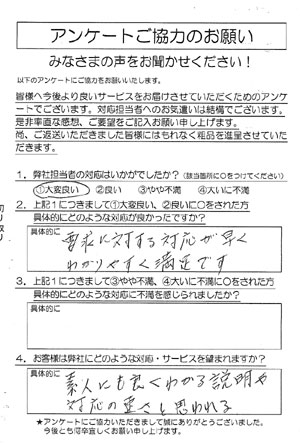 アンケートご協力のお願い
みなさまの声をお聞かせください！
以下のアンケートにご協力をお願いいたします。
皆様へ今後より良いサービスをお届けさせていただくためのアンケー
トでございます。対応担当者へのお気遣いは結構でございます。
是非率直な感想、ご要望をご記入お願い申し上げます。
尚、ご返送いただきました皆様にはもれなく粗品を進呈させていた
だきます。
1．弊社担当者の対応はいかがでしたか？（該当箇所に○をつけてください）
①大変良い ②良い ③やや不満 ④大いに不満
2．上記1につきまして①大変良い、②良いに○をされた方
具体的にどのような対応が良かったですか？
具体的に
要求に対する対応が早く
わかりやすく満足です
3．上記1につきまして③やや不満、④大いに不満に○をされた方
具体的にどのような対応に不満を感じられましたか？
具体的に
4．お客様は弊社にどのような対応・サービスを望まれますか？
具体的に
素人にも良くわかる説明や
対応の重さと思われる
★アンケートにご協力いただきまして誠にありがとうございました。
今後とも何卒宜しくお願い申し上げます。
切り取り